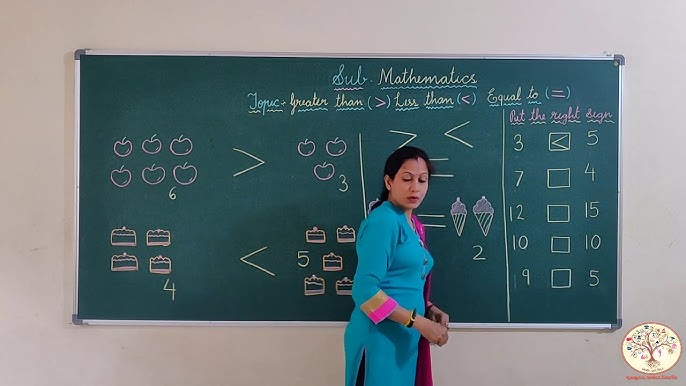 Sub. Mathematics
Topic:- Greater than (>) Less than (<) Equal to (=)
Put the right sign
> <
=
6 > 3
4 < 5
= 2
3 < 5
7 4
12 15
10 10
19 5